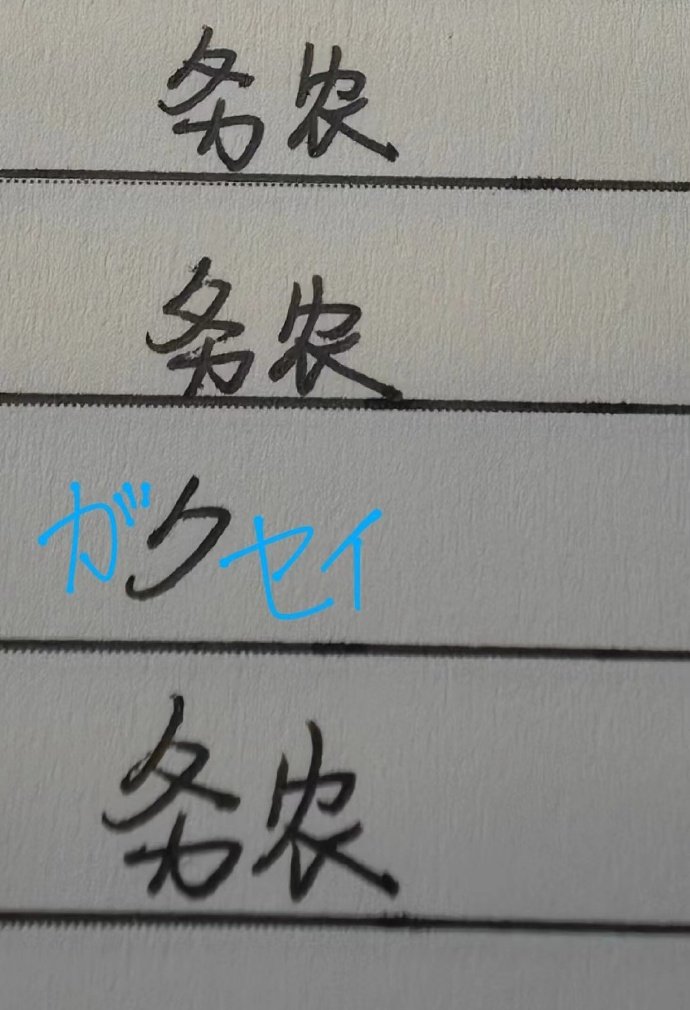 务农
务农
ガクセイ
务农